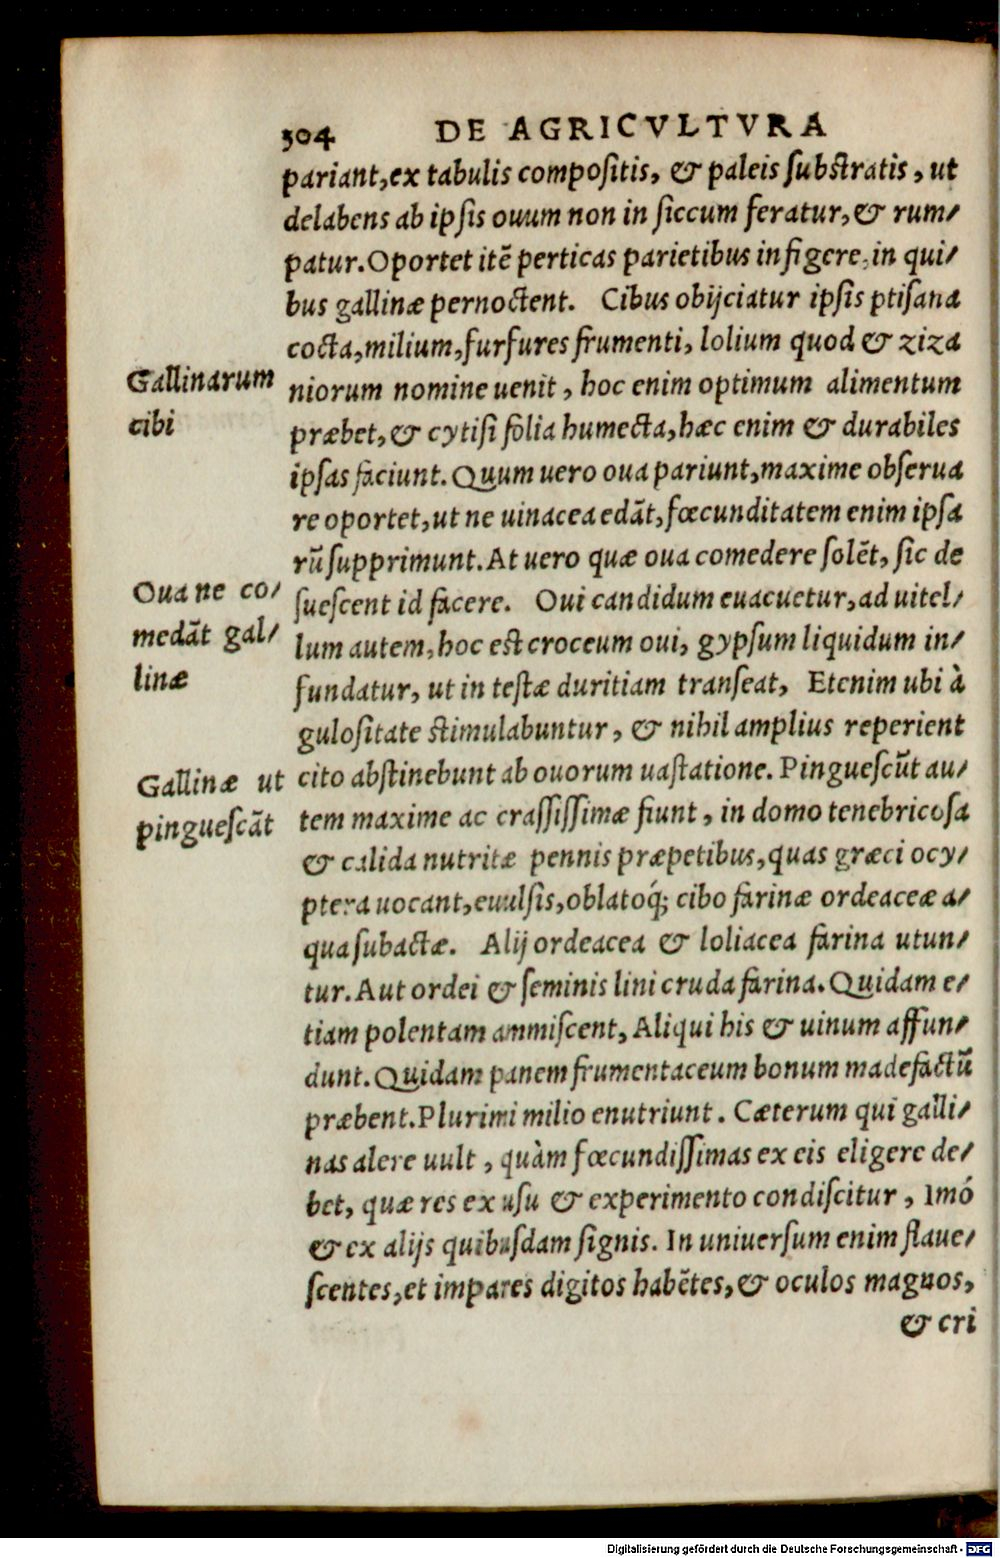 304 DE AGRICVLTVRA
pariant, ex tabulis compositis, & paleis substratis, ut
delabens ab ipsis ouum non in siccum feratur, & rum/
patur. Oportet itē perticas parietibus infigere, in qui/
bus gallinæ pernoctent. Cibus obijciatur ipsis ptisana
cocta, milium, furfures frumenti, lolium quod & ziza
Gallinarum
cibi
niorum nomine uenit, hoc enim optimum alimentum
præbet, & cytisi folia humecta, hæc enim & durabiles
ipsas faciunt. Quum uero oua pariunt, maxime obserua
re oportet, ut ne uinacea edāt, fœcunditatem enim ipsa
rū supprimunt. At uero quæ oua comedere solēt, sic de
Oua ne co/
medāt gal/
linæ
suescent id facere. Oui candidum euacuetur, ad uitel/
lum autem, hoc est croceum oui, gypsum liquidum in/
fundatur, ut in testæ duritiam transeat, Etenim ubi à
gulositate stimulabuntur, & nihil amplius reperient
Gallinæ ut
pinguescāt
cito abstinebunt ab ouorum uastatione. Pinguescūt au/
tem maxime ac crassissimæ fiunt, in domo tenebricosa
& calida nutritæ pennis præpetibus, quas græci ocy/
ptera uocant, euulsis, oblatoq́; cibo farinæ ordeaceæ a/
qua subactæ. Alij ordeacea & loliacea farina utun/
tur. Aut ordei & seminis lini cruda farina. Quidam e/
tiam polentam ammiscent, Aliqui his & uinum affun/
dunt. Quidam panem frumentaceum bonum madefactū
præbent. Plurimi milio enutriunt. Cæterum qui galli/
nas alere uult, quàm fœcundissimas ex eis eligere de/
bet, quæ res ex usu & experimento condiscitur, Imó
& ex alijs quibusdam signis. In uniuersum enim flaue/
scentes, et impares digitos habētes, & oculos magnos,
& cri
Digitalisierung gefördert durch die Deutsche Forschungsgemeinschaft - DFG